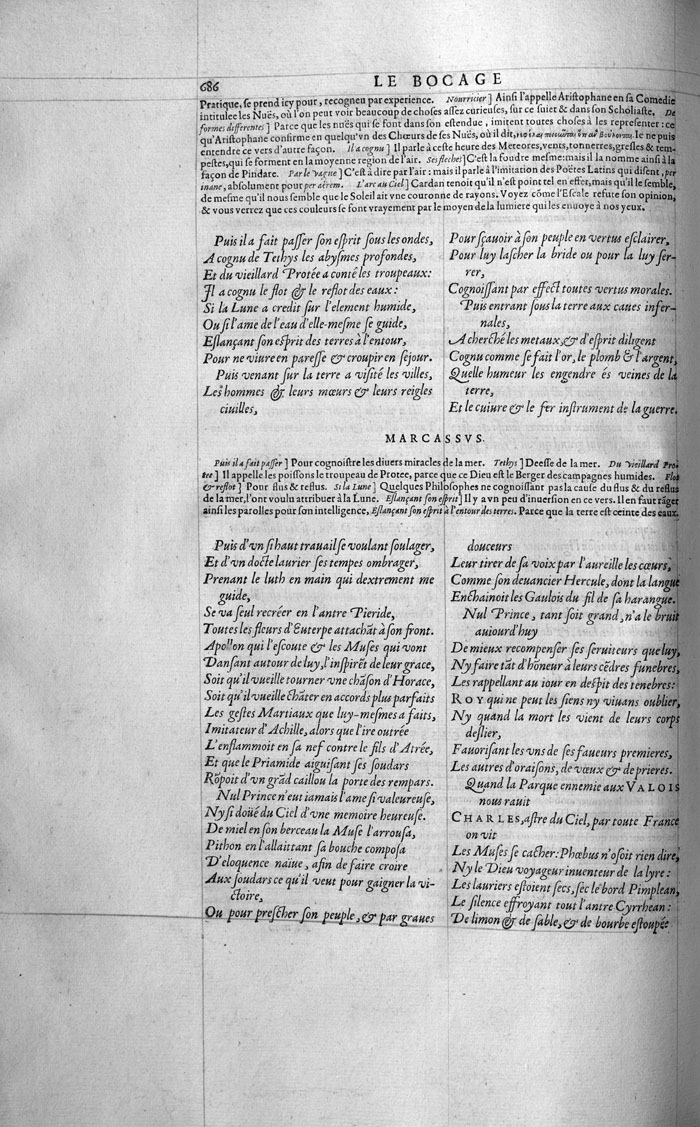 686
LE BOCAGE
Pratique, se prend icy pour, recogneu par experience. Nourricier] Ainsi l'appelle Aristophane en sa Comedie
intitulee les Nuës, où l'on peut voir beaucoup de choses assez curieuses, sur ce suiet & dans son Scholiaste. De
formes differentes] Parce que les nuës qui se font dans son estenduë, imitent toutes choses à les representer: ce
qu'Aristophane confirme en quelqu'vn des Chœurs de ses Nuës, où il dit, le ne puis
entendre ce vers d'autre façon. Il a cognu] Il parle à ceste heure des Meteores, vents, tonnerres, gresles & tem-
pestes, qui se forment en la moyenne region de l'air. Ses fleches] C'est la foudre mesme: mais il la nomme ainsi à la
façon de Pindare. Par le vague] C'est à dire par l'air: mais il parle à l'imitation des Poëtes Latins qui disent, per
inane, absolument pour per aërem. L'arc au Ciel] Cardan tenoit qu'il n'est point tel en effet, mais qu'il le semble,
de mesme qu'il nous semble que le Soleil ait vne couronne de rayons. Voyez cōme l'Escale refute son opinion,
& vous verrez que ces couleurs se font vrayement par le moyen de la lumiere qui les enuoye à nos yeux.
Puis il a fait passer son esprit sous les ondes,
A cognu de Tethys les abysmes profondes,
Et du vieillard Protée a conté les troupeaux:
Il a cognu le flot & le reflot des eaux:
Si la Lune a credit sur l'element humide,
Ou si l'ame de l'eau d'elle-mesme se guide,
Eslançant son esprit des terres à l'entour,
Pour ne viure en paresse & croupir en sejour.
Puis venant sur la terre a visité les villes,
Les hommes & leurs mœurs & leurs reigles
ciuilles,
Pour sçauoir à son peuple en vertus esclairer,
Pour luy lascher la bride ou pour la luy ser-
rer,
Cognoissant par effect toutes vertus morales.
Puis entrant sous la terre aux caues infer-
nales,
A cherché les metaux, & d'esprit diligent
Cognu comme se fait l'or, le plomb & l'argent,
Quelle humeur les engendre és veines de la
terre,
Et le cuiure & le fer instrument de la guerre.
MARCASSVS.
Puis il a fait passer] Pour cognoistre les diuers miracles de la mer. Tethys] Deesse de la mer. Du vieillard Pro-
tee] Il appelle les poissons le troupeau de Protee, parce que ce Dieu est le Berger des campagnes humides. Flot
& reflot] Pour flus & reflus. Si la Lune] Quelques Philosophes ne cognoissant pas la cause du flus & du reflus
de la mer, l'ont voulu attribuer à la Lune. Eslançant son esprit] Il y a vn peu d'inuersion en ce vers. Il en faut rāger
ainsi les parolles pour son intelligence, Eslançant son esprit à l'entour des terres. Parce que la terre est ceinte des eaux.
Puis d'vn si haut trauail se voulant soulager,
Et d'vn docte laurier ses tempes ombrager,
Prenant le luth en main qui dextrement me
guide,
Se va seul recréer en l'antre Pieride,
Toutes les fleurs d'Euterpe attachāt à son front.
Apollon qui l'escoute & les Muses qui vont
Dansant autour de luy, l'inspirēt de leur grace,
Soit qu'il vueille tourner vne chāson d'Horace,
Soit qu'il vueille chāter en accords plus parfaits
Les gestes Martiaux que luy-mesmes a faits,
Imitateur d'Achille, alors que l'ire outrée
L'enflammoit en sa nef contre le fils d'Atrée,
Et que le Priamide aiguisant ses soudars
Rōpoit d'vn grād caillou la porte des rempars.
Nul Prince n'eut iamais l'ame si valeureuse,
Ny si doüé du Ciel d'vne memoire heureuse.
De miel en son berceau la Muse l'arrousa,
Pithon en l'allaittant sa bouche composa
D'eloquence naïue, afin de faire croire
Aux soudars ce qu'il veut pour gaigner la vi-
ctoire,
Ou pour prescher son peuple, & par graues
douceurs
Leur tirer de sa voix par l'aureille les cœurs,
Comme son deuancier Hercule, dont la langue
Enchainoit les Gaulois du fil de sa harangue.
Nul Prince, tant soit grand, n'a le bruit
aujourd'huy
De mieux recompenser ses seruiteurs que luy,
Ny faire tāt d'hōneur à leurs cēdres funebres,
Les rappellant au iour en despit des tenebres:
ROY qui ne peut les siens ny viuans oublier,
Ny quand la mort les vient de leurs corps
deslier,
Fauorisant les vns de ses faueurs premieres,
Les autres d'oraisons, de vœux & de prieres.
Quand la Parque ennemie aux VALOIS
nous rauit
CHARLES, astre du Ciel, par toute France
on vit
Les Muses se cacher: Phœbus n'osoit rien dire,
Ny le Dieu voyageur inuenteur de la lyre:
Les lauriers estoient secs, sec le bord Pimplean,
Le silence effroyant tout l'antre Cyrrhean:
De limon & de sable, & de bourbe estoupée